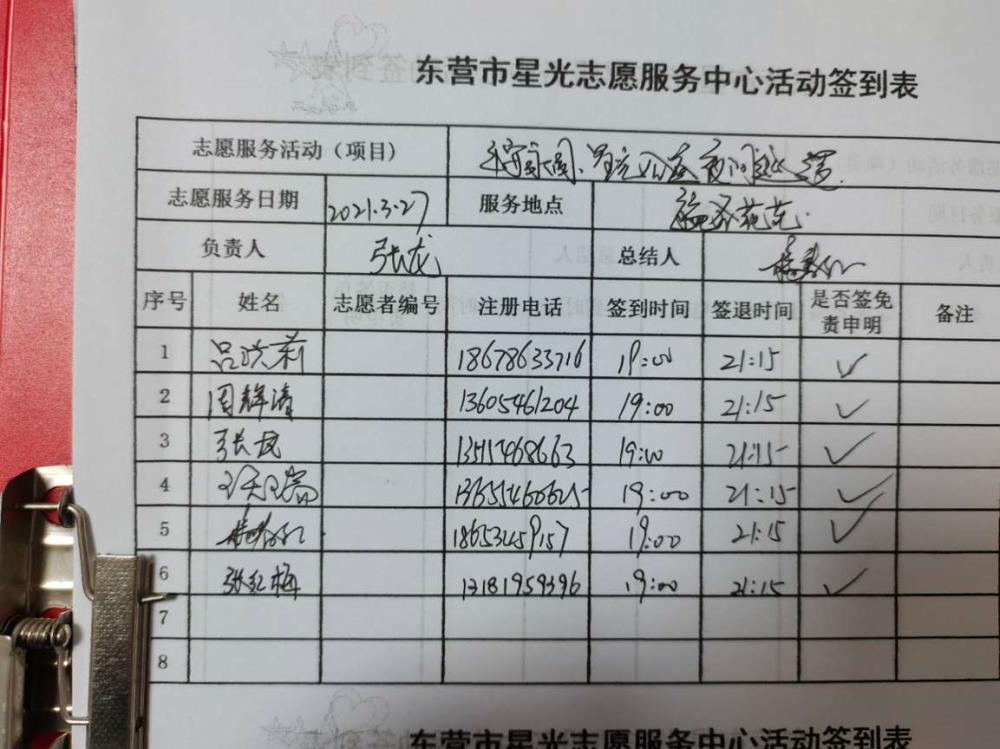 东营市星光志愿服务中心活动签到表
志愿服务活动（项目）
志愿服务日期 2021.3.27 服务地点
负责人 张龙 总结人
序号 姓名 志愿者编号 注册电话 签到时间 签退时间 是否签免责申明 备注
1 吕洪莉 18678633716 19:00 21:15 ✓
2 周辉清 13605461204 19:00 21:15 ✓
3 张龙 19:00 21:15 ✓
4 13655460625 19:00 21:15 ✓
5 18653459157 19:00 21:15 ✓
6 张红梅 13181959396 19:00 21:15 ✓
7
8
东营市星光志愿服务中心活动签到表